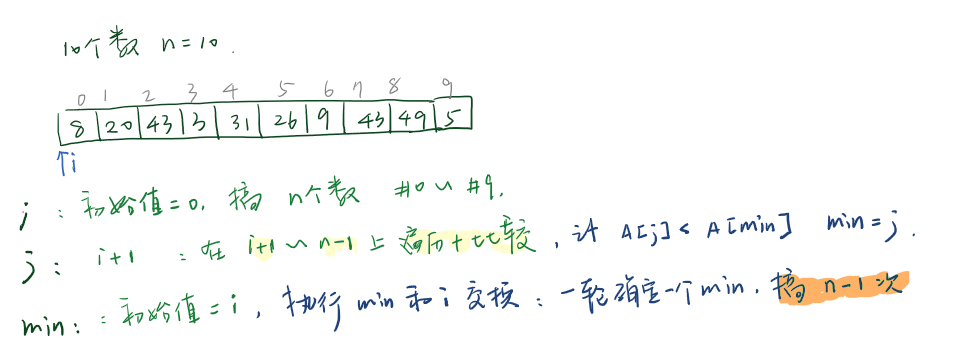 10个数 n=10.
0 1 2 3 4 5 6 7 8 9
8 20 43 3 31 26 9 43 49 5
↑i
i : 初始值=0. 搞 n个数 #0~#9.
j : i+1 : 在 i+1 ~ n-1 上 遍历+比较, 计 A[j] < A[min] min=j.
min: : 初始值=i, 执行 min 和 i 交换: 一轮确定一个min. 搞 n-1 次